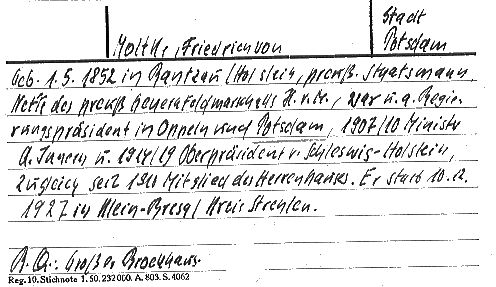 Stadt
Moltke, Friedrich von Potsdam
Geb. 1.5.1852 in Rantzau/Holstein, preuß. Staatsmann,
Neffe des preuß Generalfeldmarschalls H.v.M., war u.a. Regie-
rungspräsident in Oppeln und Potsdam, 1907/10 Minister
d. Innern u. 1914/19 Oberpräsident v. Schleswig-Holstein,
zugleich seit Mitglied des Herrenhauses. Er starb 10.12.
1927 in Klein-Bresa/Kreis Strehlen.
B.Q.: Großer Brockhaus.
Reg. 10. Stichnote 1. 50. 232000. A. 803. S. 4062